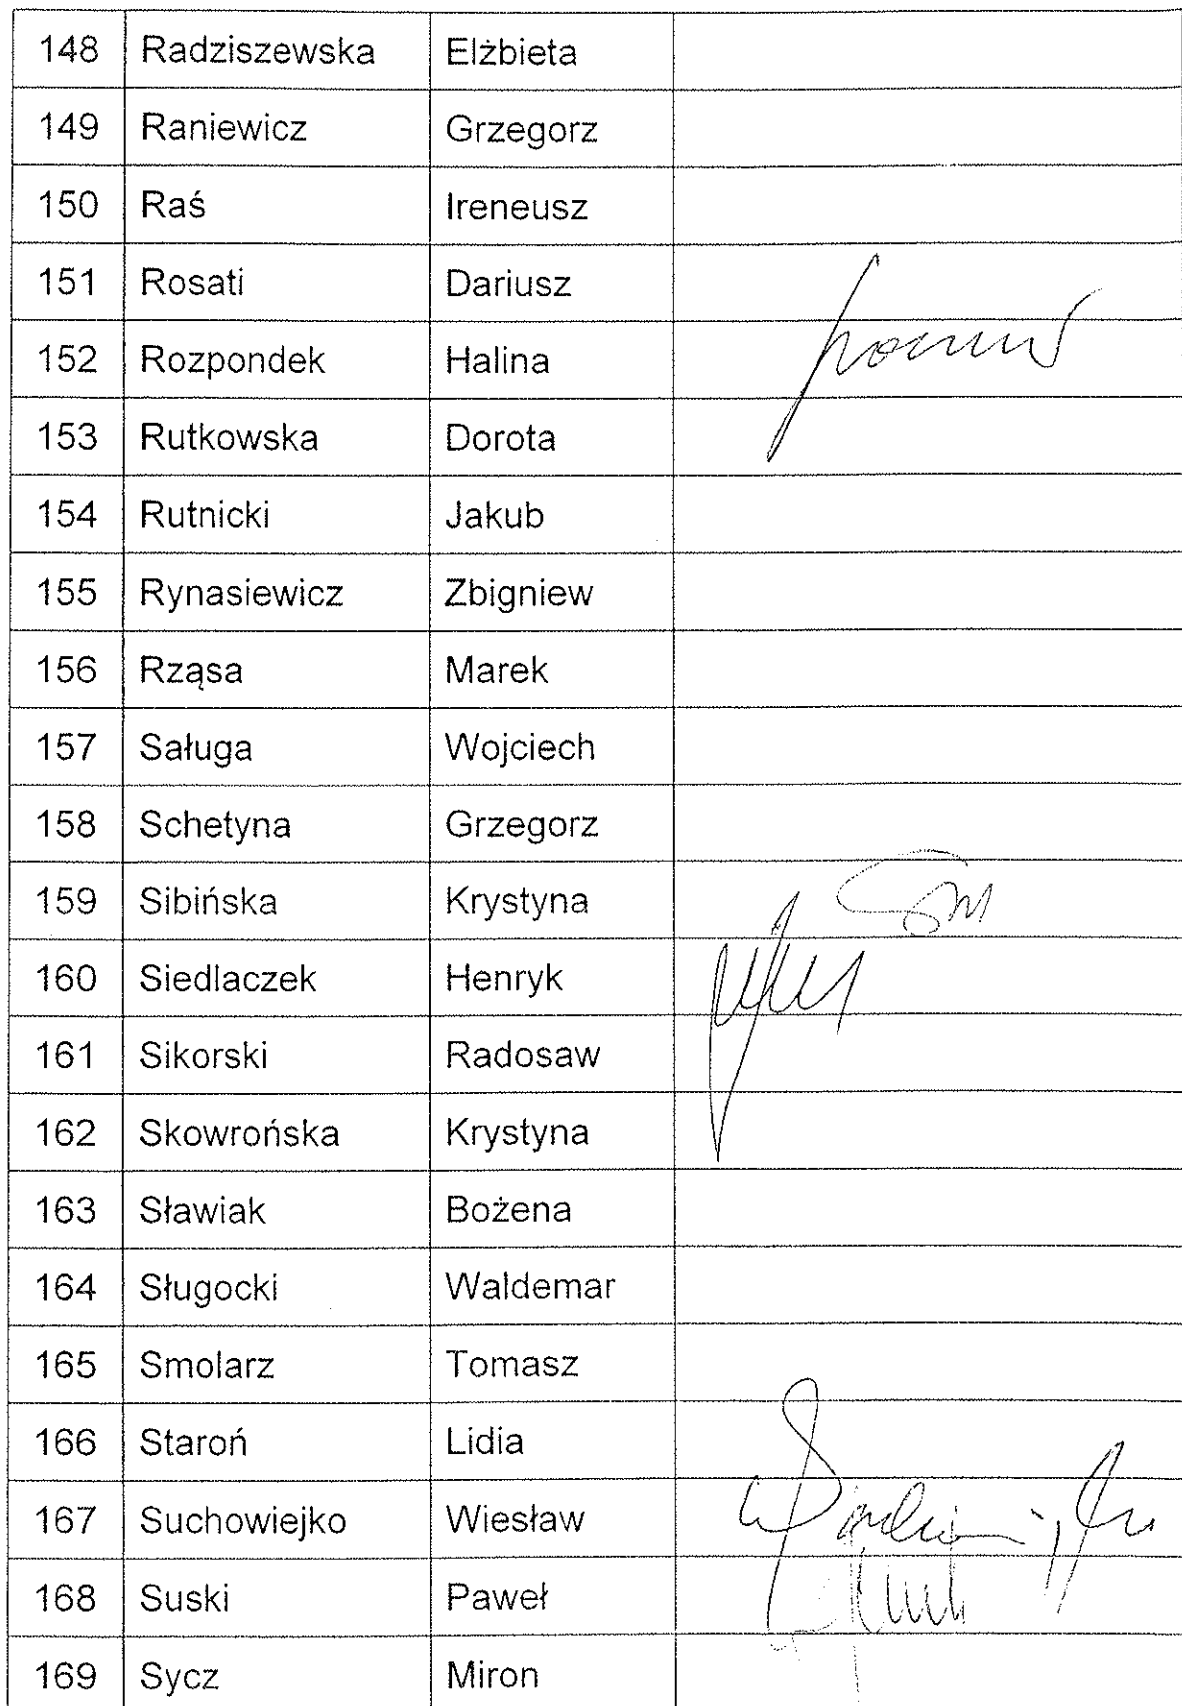 148 Radziszewska Elżbieta
149 Raniewicz Grzegorz
150 Raś Ireneusz
151 Rosati Dariusz
152 Rozpondek Halina
153 Rutkowska Dorota
154 Rutnicki Jakub
155 Rynasiewicz Zbigniew
156 Rząsa Marek
157 Saługa Wojciech
158 Schetyna Grzegorz
159 Sibińska Krystyna
160 Siedlaczek Henryk
161 Sikorski Radosaw
162 Skowrońska Krystyna
163 Sławiak Bożena
164 Sługocki Waldemar
165 Smolarz Tomasz
166 Staroń Lidia
167 Suchowiejko Wiesław
168 Suski Paweł
169 Sycz Miron